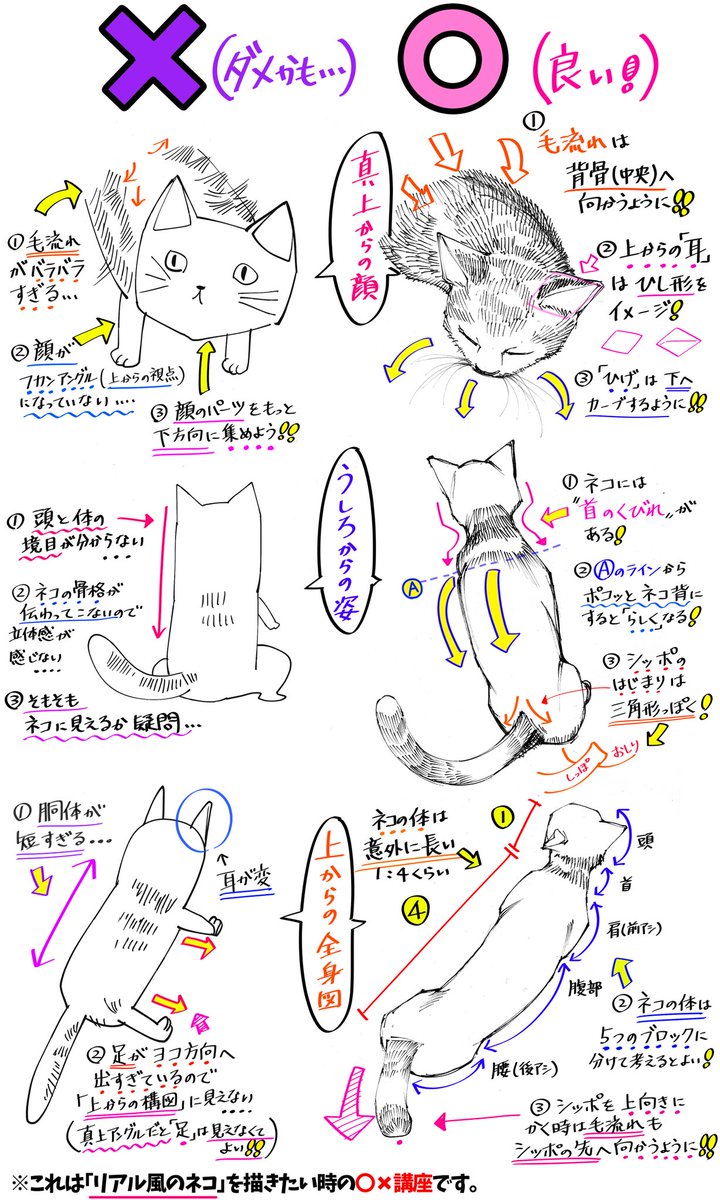 (ダメかも…)
(良い!)
真上からの顔
①毛流れ
がバラバラ
すぎる…
②顔が
フカンアングル(上からの視点)
になっていない….
③顔のパーツをもっと
下方向に集めよう!!
①
毛流れは
背骨(中央)へ
向かうように!!
②上からの「耳」
はひし形を
イメージ!
③「ひげ」は下へ
カーブするように!!
うしろからの姿
①頭と体の
境目が分からない…
②ネコの骨格が
伝わってこないので
立体感が
感じない
③そもそも
ネコに見えるか疑問…
①ネコには
"首のくびれ"が
ある!
Ⓐ
②Ⓐのラインから
ポコッとネコ背に
すると「らしく」なる!
③シッポの
はじまりは
三角形っぽく!
しっぽ
おしり
上からの全身図
①胴体が
短すぎる…
耳が変
②足がヨコ方向へ
出すぎているので
「上からの構図」に見えない…
(真上アングルだと「足」は見えなくて
よい!!)
ネコの体は
意外に長い
1:4くらい
①
④
頭
首
肩(前アシ)
腹部
腰(後アシ)
②ネコの体は
5つのブロックに
分けて考えるとよい!
③シッポを上向きに
かく時は毛流れも
シッポの先へ向かうように!
※これは「リアル風のネコ」を描きたい時の○×講座です。